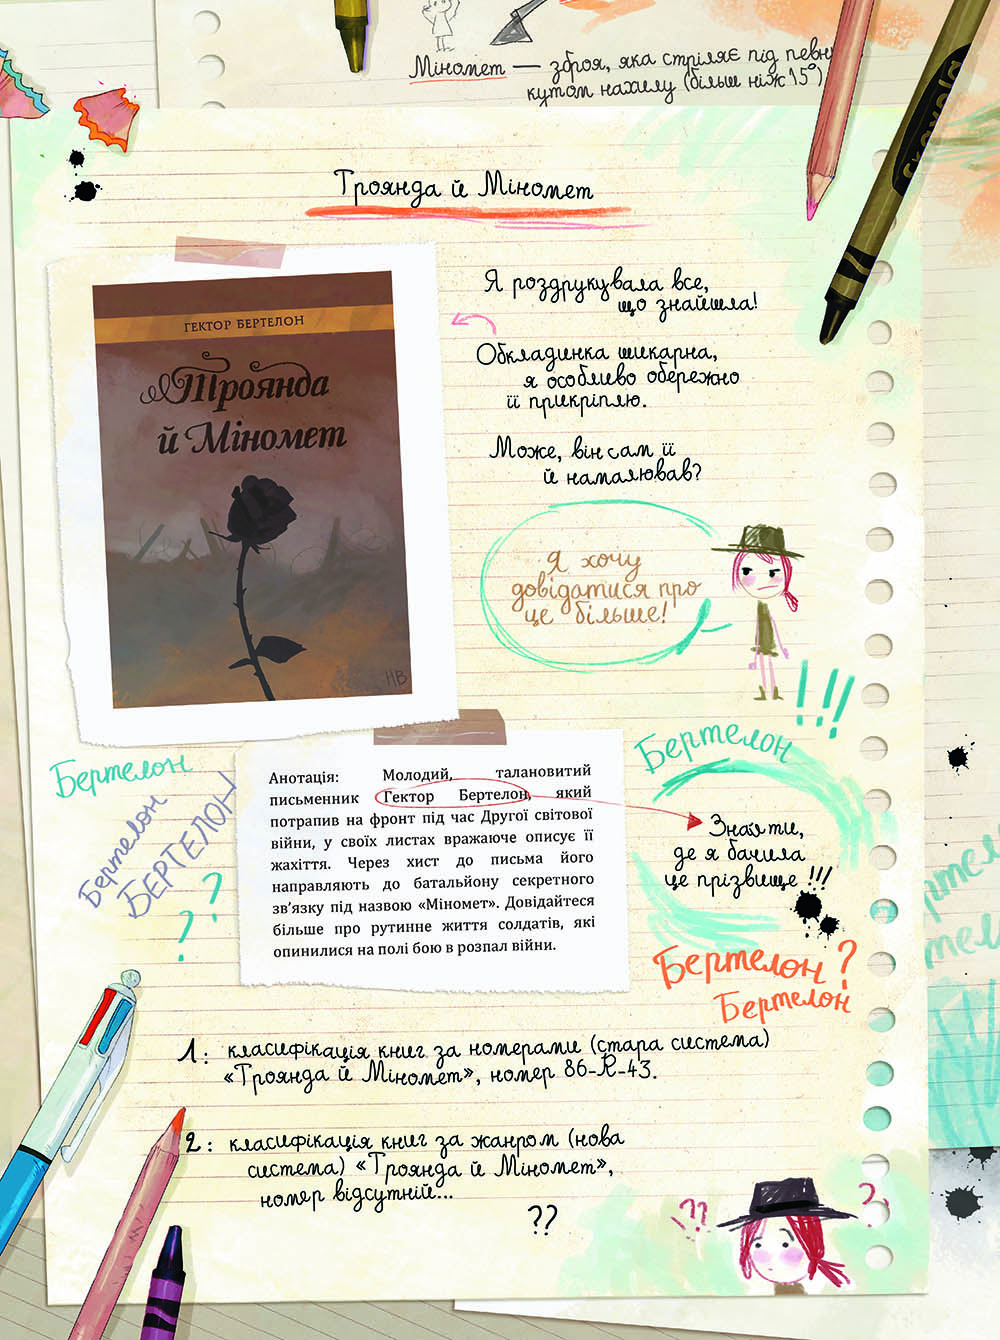 Міномет — зброя, яка стріляє під
кутом нахилу (більш ніж 15°)
Crayola
Троянда й Міномет
ГЕКТОР БЕРТЕЛОН
Троянда
й Міномет
НВ
Я роздрукувала все,
що знайшла!
Обкладинка шикарна,
я особливо обережно
її прикріплю.
Може, він сам її
й намалював?
Я хочу
довідатися про
це більше!
!!!
Бертелон
Бертелон
БЕРТЕЛОН
? ?
Анотація: Молодий, талановитий
письменник Гектор Бертелон, який
потрапив на фронт під час Другої світової
війни, у своїх листах вражаюче описує її
жахіття. Через хист до письма його
направляють до батальйону секретного
зв’язку під назвою «Міномет». Довідайтеся
більше про рутинне життя солдатів, які
опинилися на полі бою в розпал війни.
Бертелон
Знаєти,
де я бачила
це прізвище !!!
Бертелон ?
Бертелон
1: класифікація книг за номерами (стара система)
«Троянда й Міномет», номер 86-R-43.
2: класифікація книг за жанром (нова
система) «Троянда й Міномет»,
номер відсутній...
??
!??
?